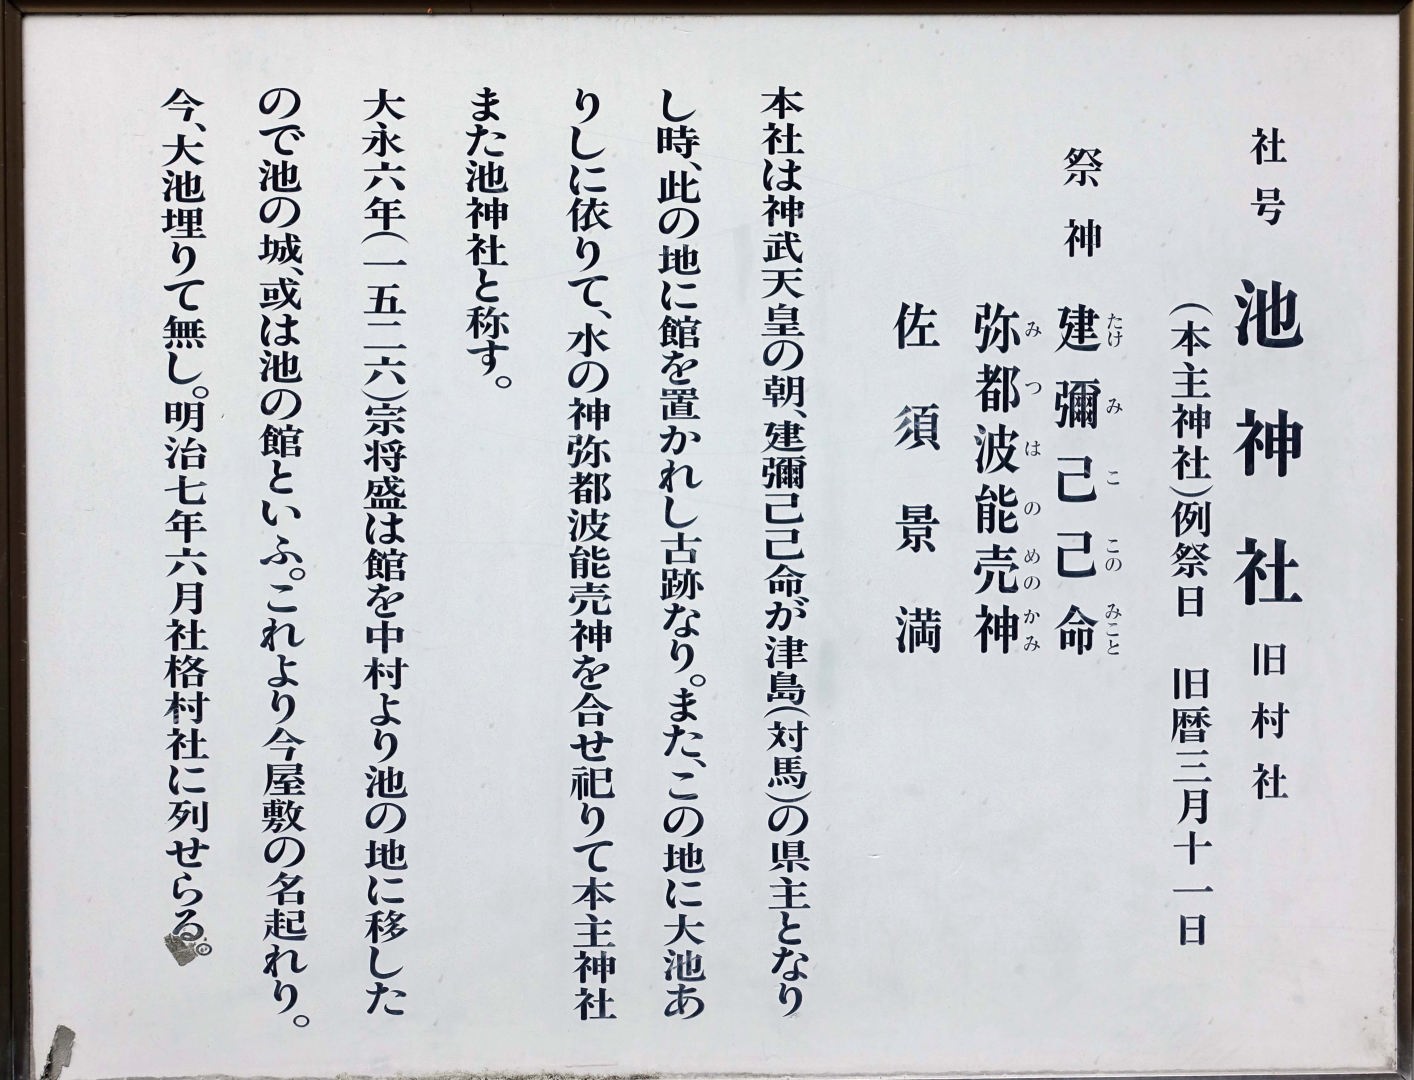 社号 池神社 旧村社
(本主神社)例祭日 旧暦三月十一日
祭神 建彌己己命
たけ み こ この みこと
弥都波能売神
み つ は の めの かみ
佐須景満
本社は神武天皇の朝、建彌己己命が津島(対馬)の県主となり
し時、此の地に館を置かれし古跡なり。また、この地に大池あ
りしに依りて、水の神弥都波能売神を合せ祀りて本主神社
また池神社と称す。
大永六年(一五二六)宗将盛は館を中村より池の地に移した
ので池の城、或は池の館といふ。これより今屋敷の名起れり。
今、大池埋りて無し。明治七年六月社格村社に列せらる。